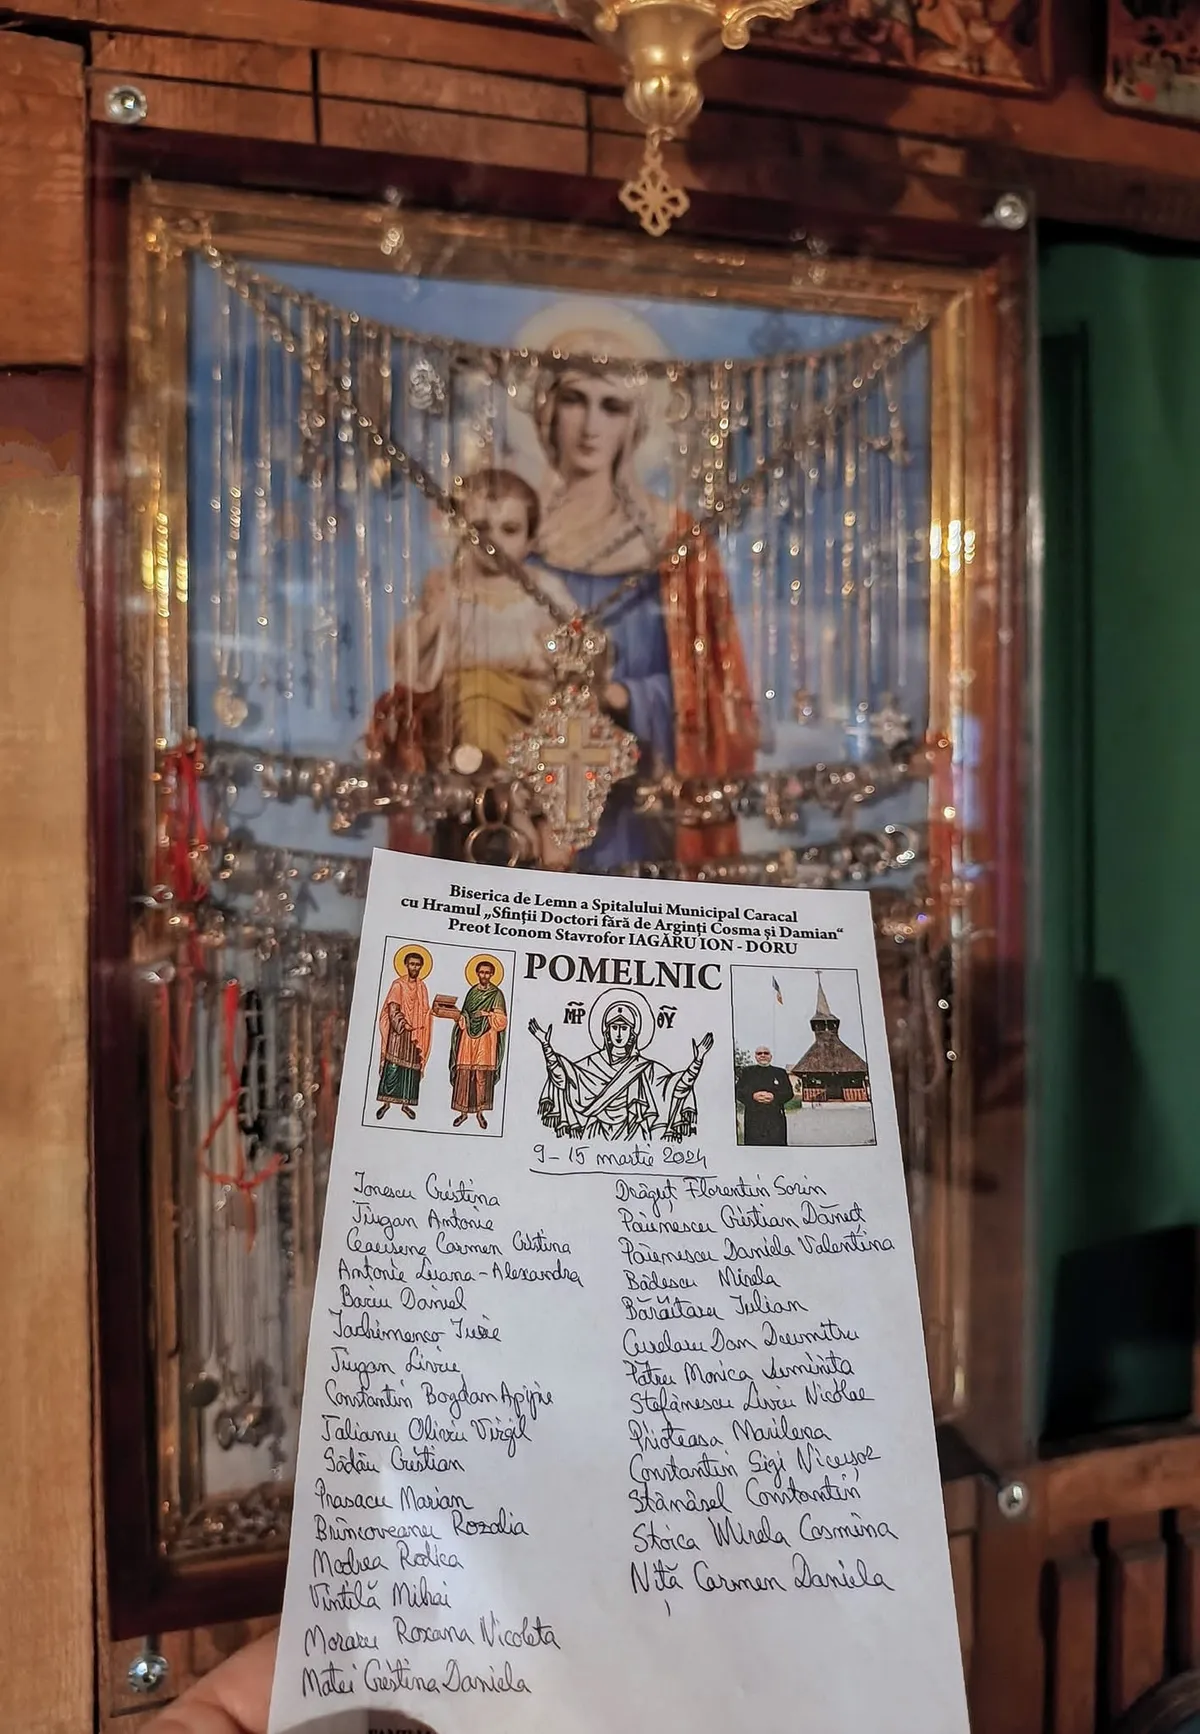 Biserica de Lemn a Spitalului Municipal Caracal
cu Hramul „Sfinții Doctori fără de Arginți Cosma și Damian“
Preot Iconom Stavrofor IAGĂRU ION - DORU
POMELNIC
9-15 martie 2024
Ionescu Cristina
Jiugan Antonie
Carmen Cristina
Antonie Luana-Alexandra
Bariu Daniel
Jugan Liviu
Constantin Bogdan
Talianu Oliviu Virgil
Sădău Cristian
Prasacu Marian
Brîncoveanu Rozalia
Modrea Rodica
Vintilă Mihai
Moraru Roxana Nicoleta
Matei Cristina Daniela
Drăguț Florentin Sorin
Păunescu Cristian Dănuț
Păunescu Daniela Valentina
Bădescu Mirela
Iulian
Curelaru Dan Dumitru
Pătru Monica Luminita
Ștefănescu Liviu Nicolae
Prioteasa Marilena
Constantin Gigi Nicușor
Stănășel Constantin
Stoica Mirela Cosmina
Niță Carmen Daniela